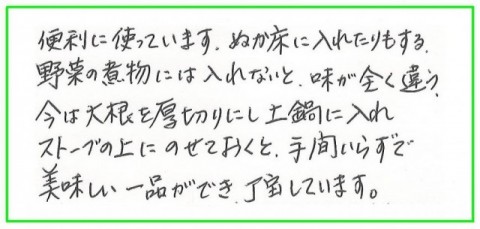 便利に使っています、ぬか床に入れたりもする、
野菜の煮物には入れないと、味が全く違う、
今は大根を厚切りにし土鍋に入れ
ストーブの上にのせておくと、手間いらずで
美味しい一品ができ、丁宝しています。